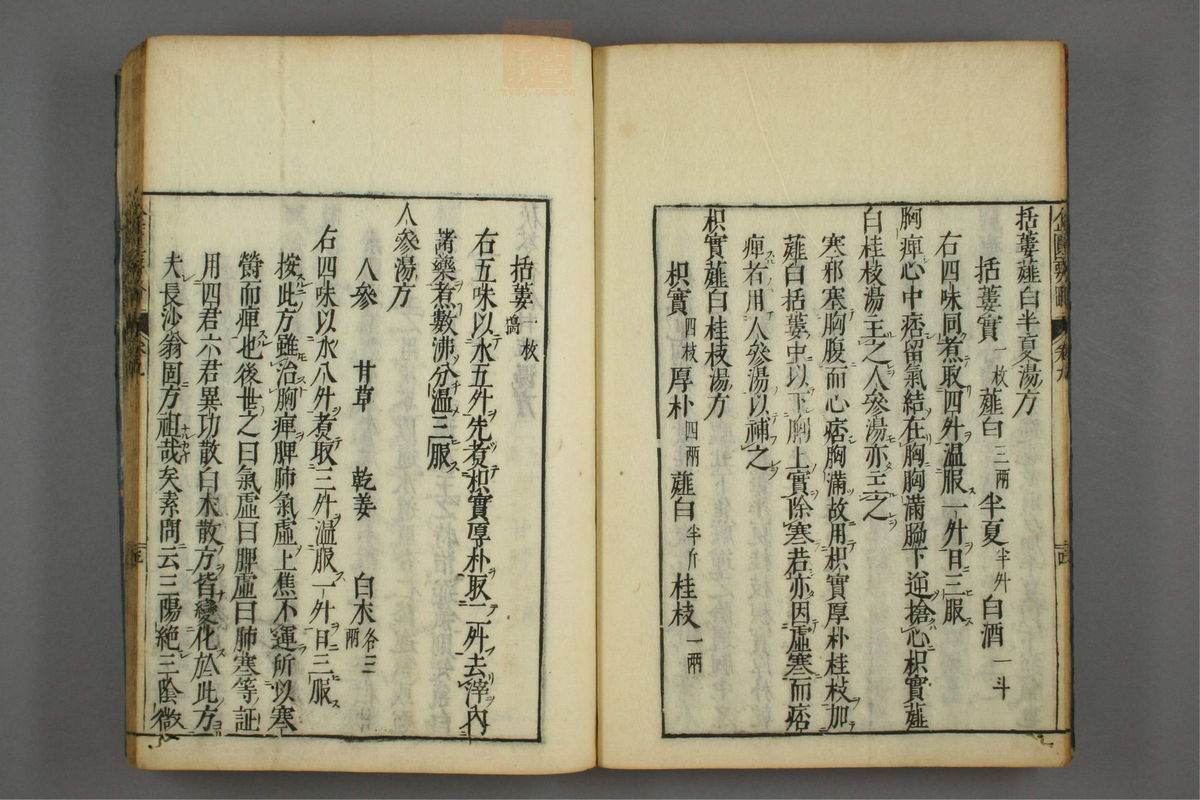 括蔞薤白半夏湯方
括蔞實一枚 薤白三兩 半夏半升 白酒一斗
右四味同煮取四升温服一升日三服
胸痺心中痞留氣結在胸胸滿脇下逆搶心枳實薤
白桂枝湯主之人參湯亦主之
寒邪寒胸腹而心痞胸滿故用枳實厚朴桂枝加
薤白括蔞中以下胸上實除寒若亦因虛寒而痞
痺右用人參湯以補之
枳實薤白桂枝湯方
枳實四枚 厚朴四兩 薤白半斤 桂枝一兩
括蔞一枚搗
右五味以水五升先煮枳實厚朴取二升去滓內
諸藥煮數沸分温三服
人參湯方
人參 甘草 乾姜 白朮各三兩
右四味以水八升煮取三升温服一升日三服
按此方雖治胸痺脾肺氣虛上焦不運所以寒
而痺也後世之曰氣虛曰脾虛曰肺寒等証
用四君六君異功散白朮散方皆變化於此方
夫長沙翁固方祖哉矣素問云三陽絶三陰微